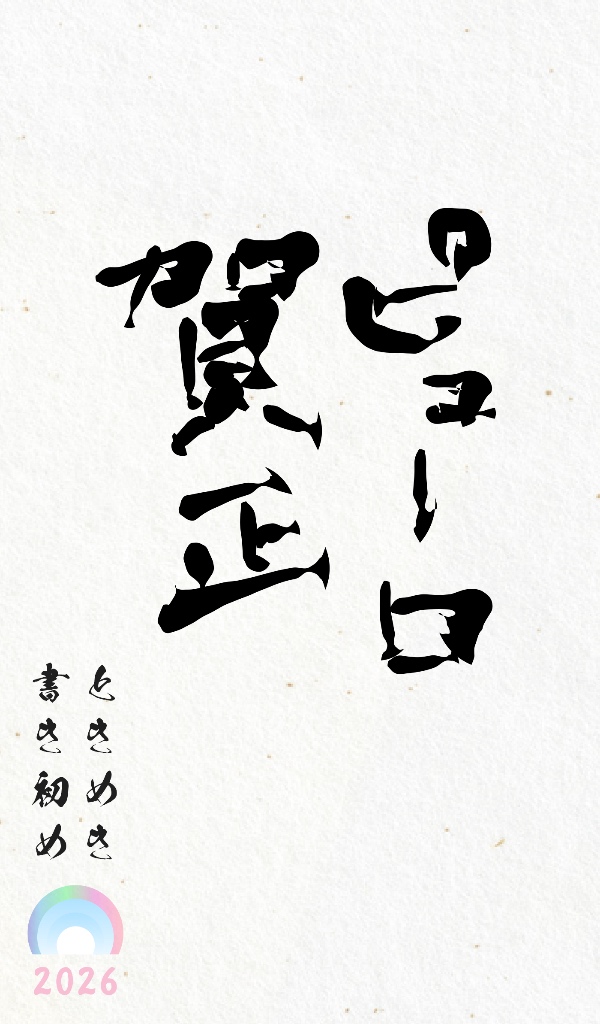 ピューロ
賀正
ときめき
書き初め
2026